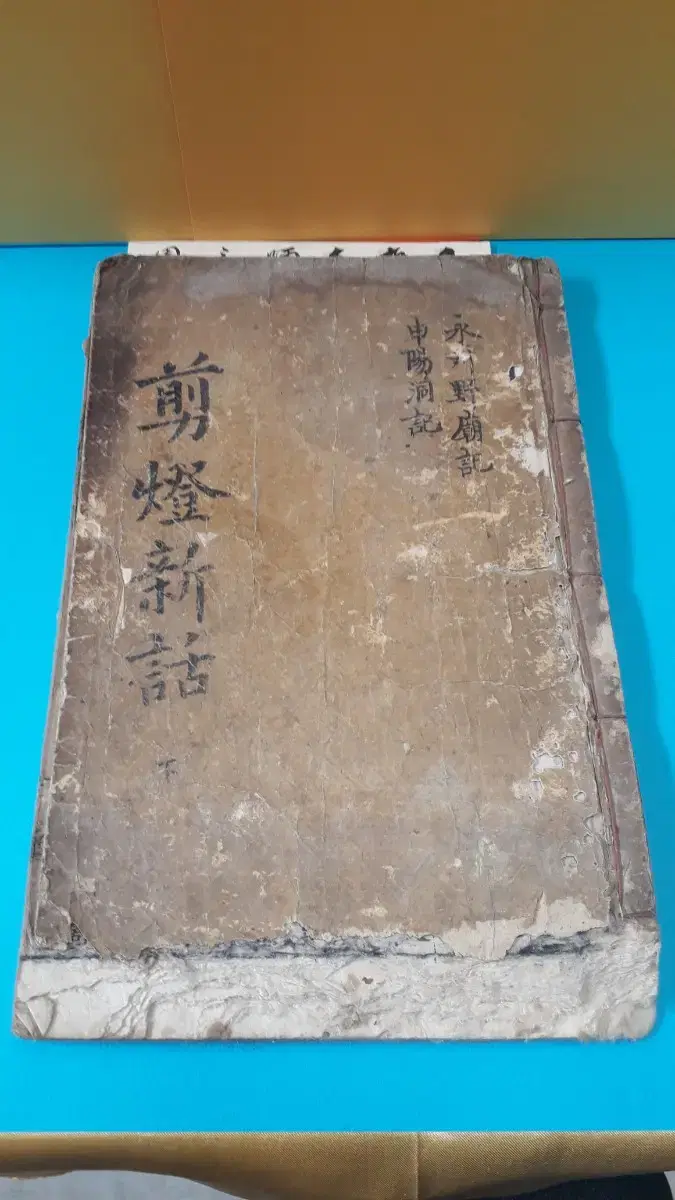 永州野廟記
申陽洞記
剪燈新話
下